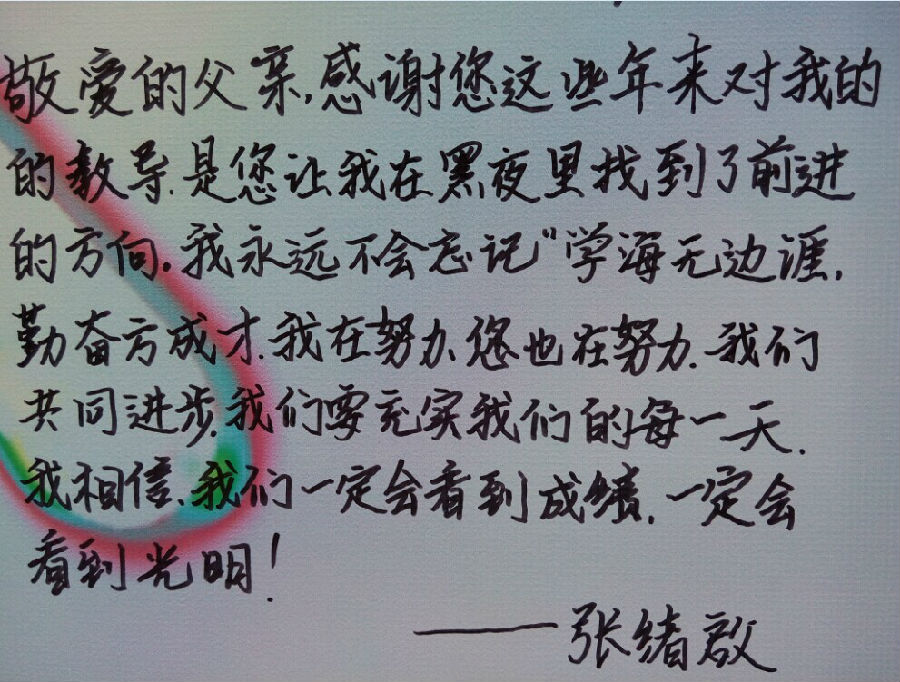 敬爱的父亲,感谢您这些年来对我的
的教导.是您让我在黑夜里找到了前进
的方向。我永远不会忘记“学海无边涯,
勤奋方成才.我在努力、您也在努力.我们
共同进步.我们要充实我们的每一天.
我相信.我们一定会看到成绩.一定会
看到光明!
——张绪啟